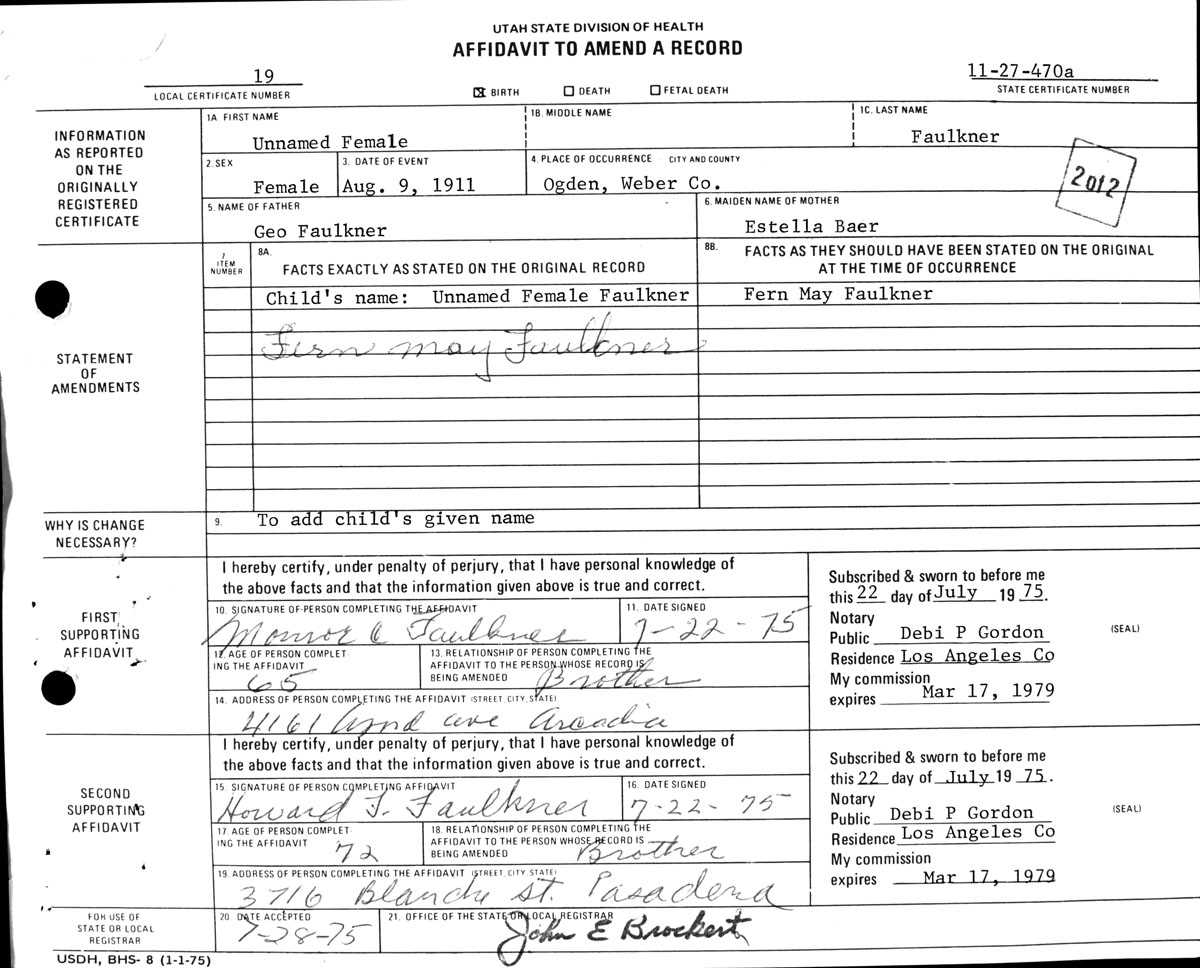 UTAH STATE DIVISION OF HEALTH
AFFIDAVIT TO AMEND A RECORD
19
LOCAL CERTIFICATE NUMBER
☒ BIRTH ☐ DEATH ☐ FETAL DEATH
11-27-470a
STATE CERTIFICATE NUMBER
INFORMATION
AS REPORTED
ON THE
ORIGINALLY
REGISTERED
CERTIFICATE
1A. FIRST NAME
Unnamed Female
1B. MIDDLE NAME
1C. LAST NAME
Faulkner
2. SEX
Female
3. DATE OF EVENT
Aug. 9, 1911
4. PLACE OF OCCURRENCE CITY AND COUNTY
Ogden, Weber Co.
2012
5. NAME OF FATHER
Geo Faulkner
6. MAIDEN NAME OF MOTHER
Estella Baer
STATEMENT
OF
AMENDMENTS
7
ITEM
NUMBER
8A.
FACTS EXACTLY AS STATED ON THE ORIGINAL RECORD
8B. FACTS AS THEY SHOULD HAVE BEEN STATED ON THE ORIGINAL
AT THE TIME OF OCCURRENCE
Child's name: Unnamed Female Faulkner
Fern May Faulkner
Fern may Faulkner
WHY IS CHANGE
NECESSARY?
9. To add child's given name
FIRST
SUPPORTING
AFFIDAVIT
I hereby certify, under penalty of perjury, that I have personal knowledge of
the above facts and that the information given above is true and correct.
10. SIGNATURE OF PERSON COMPLETING THE AFFIDAVIT
Faulkner
11. DATE SIGNED
7-22-75
12. AGE OF PERSON COMPLET
ING THE AFFIDAVIT
65
13. RELATIONSHIP OF PERSON COMPLETING THE
AFFIDAVIT TO THE PERSON WHOSE RECORD IS
BEING AMENDED Brother
14. ADDRESS OF PERSON COMPLETING THE AFFIDAVIT (STREET, CITY, STATE)
4161 ave Arcadia
Subscribed & sworn to before me
this 22 day of July 19 75.
Notary
Public Debi P Gordon
Residence Los Angeles Co
My commission
expires Mar 17, 1979
(SEAL)
SECOND
SUPPORTING
AFFIDAVIT
I hereby certify, under penalty of perjury, that I have personal knowledge of
the above facts and that the information given above is true and correct.
15. SIGNATURE OF PERSON COMPLETING AFFIDAVIT
Howard T. Faulkner
16. DATE SIGNED
7-22-75
17. AGE OF PERSON COMPLET
ING THE AFFIDAVIT 72
18. RELATIONSHIP OF PERSON COMPLETING THE
AFFIDAVIT TO THE PERSON WHOSE RECORD IS
BEING AMENDED Brother
19. ADDRESS OF PERSON COMPLETING THE AFFIDAVIT (STREET, CITY, STATE)
3716 Blanche st. Pasadena
Subscribed & sworn to before me
this 22 day of July 19 75.
Notary
Public Debi P Gordon
Residence Los Angeles Co
My commission
expires Mar 17, 1979
(SEAL)
FOR USE OF
STATE OR LOCAL
REGISTRAR
20. DATE ACCEPTED
7-28-75
21. OFFICE OF THE STATE OR LOCAL REGISTRAR
John E Brockert
USDH, BHS- 8 (1-1-75)